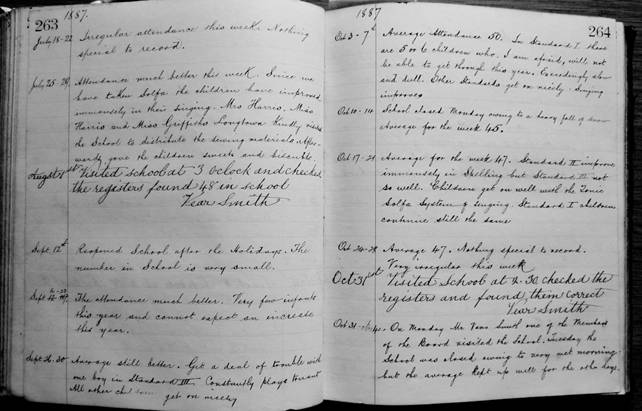 263
1887.
July 18-22 Irregular attendance this week. Nothing
special to record.
July 25-29 Attendance much better this week. Since we
have taken Solfa the children have improved
immensely in their singing. Mrs Harris, Miss
Harris and Miss Griffiths Longtown kindly visited
the School to distribute the sewing materials & after-
wards gave the children sweets and biscuits.
August 1st Visited school at 3 oclock and checked
the registers found 48 in school
Smith
Sept. 12th Reopened School after the Holidays. The
number in School is very small.
Sept The attendance much better. Very few infants
this year and cannot expect an increase
this year.
Sept 26-30 Average still better. Get a deal of trouble with
one boy in Standard III. Constantly plays truant
All other get on nicely
264
1887
Oct 3-7th Average Attendance 50. In Standard I there
are 5 or 6 children who, I am afraid, will not
be able to get through this year. Exceedingly slow
and dull. Other Standards get on nicely. Singing
improves
Oct 10-14 School closed Monday owing to a heavy fall of snow
Average for the week 45.
Oct 17-21 Average for the week 47. Standard II improve
immensely in Spelling but Standard III not
so well. Children get on well with the Tonic
Solfa System of Singing. Standard I children
continue still the same
Oct 24-28 Average 47. Nothing special to record.
Very irregular this week
Oct 31st Visited School at 2.30 checked the
registers and found them correct
Smith
Oct 31 On Monday Mr Smith one of the Members
of the Board visited the School. Tuesday the
School was closed owing to very wet morning
but the average kept up well for the other days.